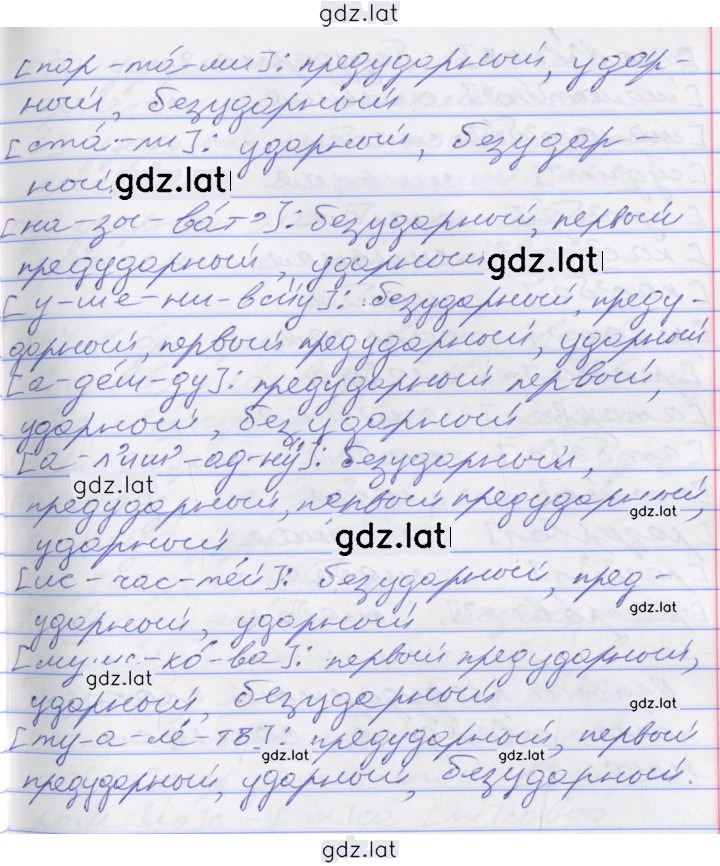 gdz.lat
[пар-та́-ми]: предударный, удар-
ный, безударный
[ста́-ли]: ударный, безудар-
ный.
gdz.lat
[на-зы-ва́т']: безударный, первый
предударный, ударный
gdz.lat
безударный, преду-
дарный, первый предударный, ударный
[а-де́ж-ду]: предударный первый,
ударный, безударный
безударный,
gdz.lat
предударный, первый предударный,
gdz.lat
ударный
gdz.lat
[ис-час-те́й]: безударный, пред-
ударный, ударный
gdz.lat
первый предударный,
gdz.lat
ударный, безударный
gdz.lat
[ту-а-ле́-тъ]: предударный, первый
gdz.lat
gdz.lat
предударный, ударный, безударный.
gdz.lat